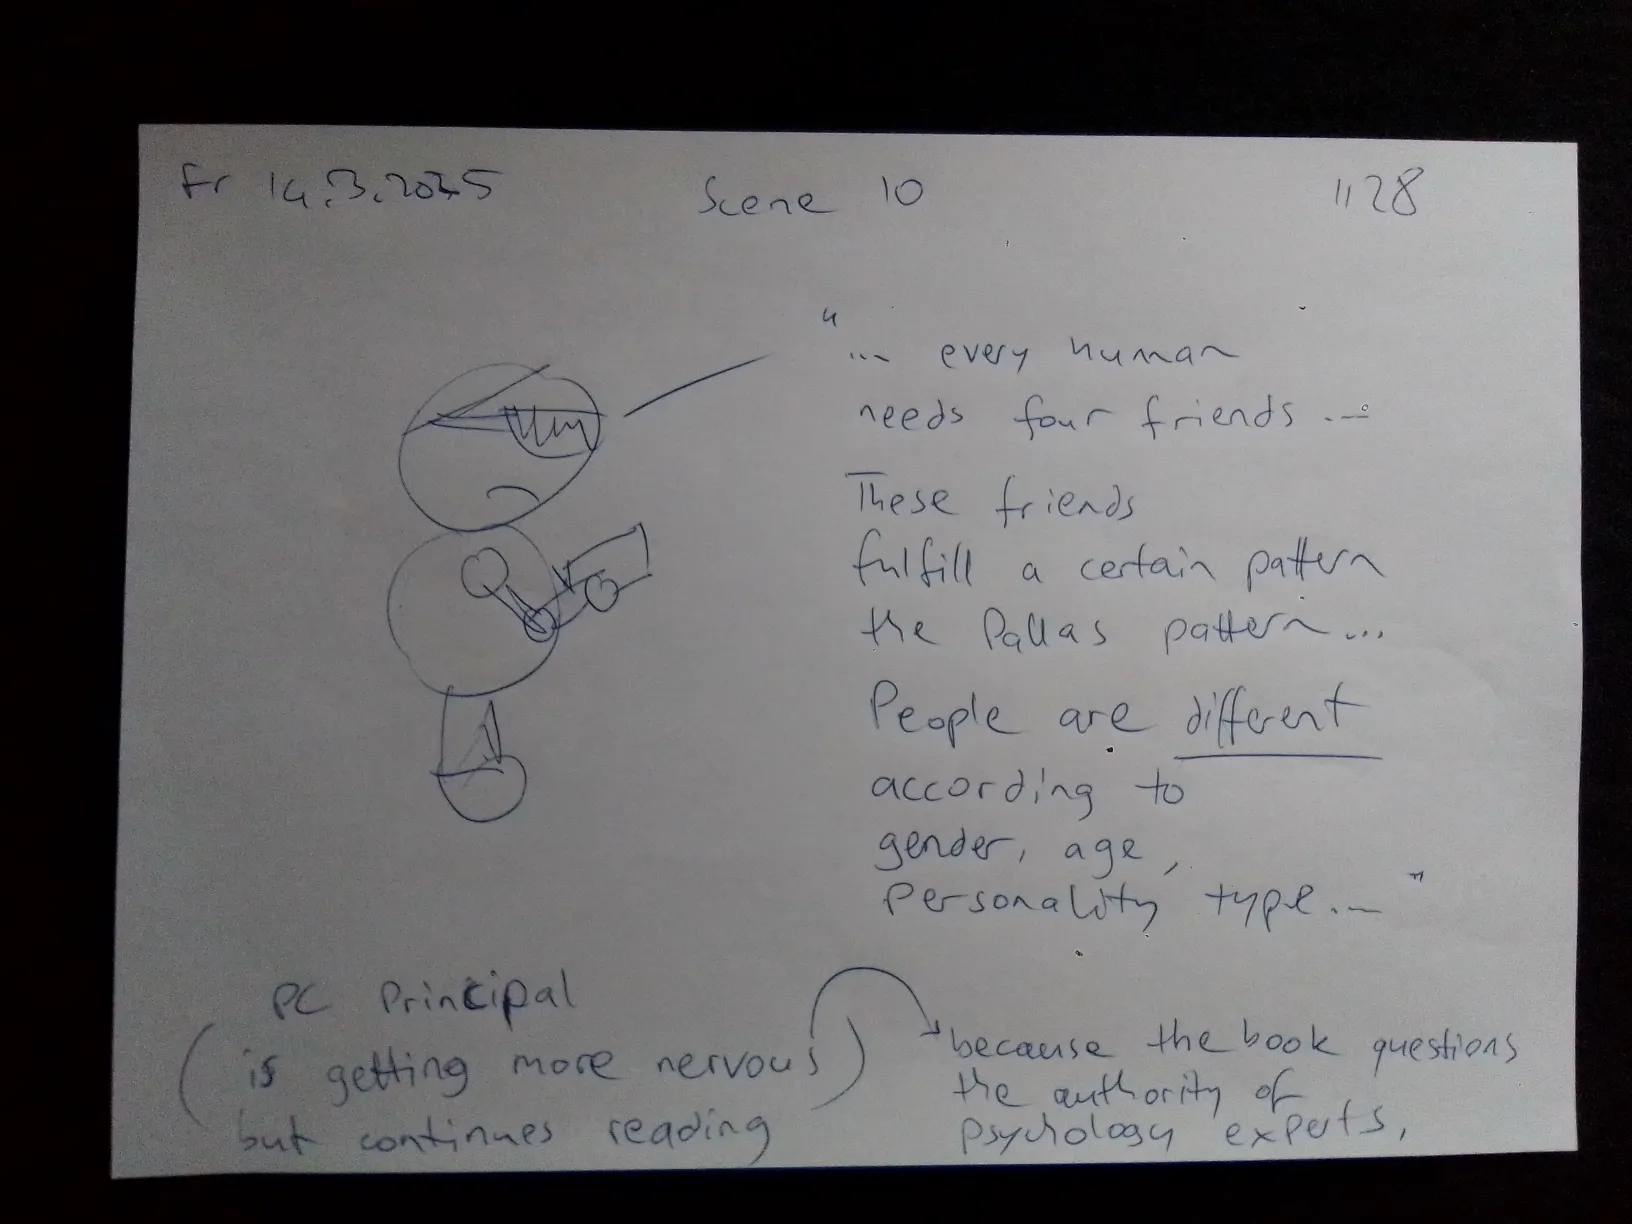 Fr 14.3.2025
Scene 10
1128
"... every human
needs four friends ...
These friends
fulfill a certain pattern
the Pallas pattern...
People are different
according to
gender, age,
Personality type..."
PC Principal
(is getting more nervous)
but continues reading
because the book questions
the authority of
psychology experts,